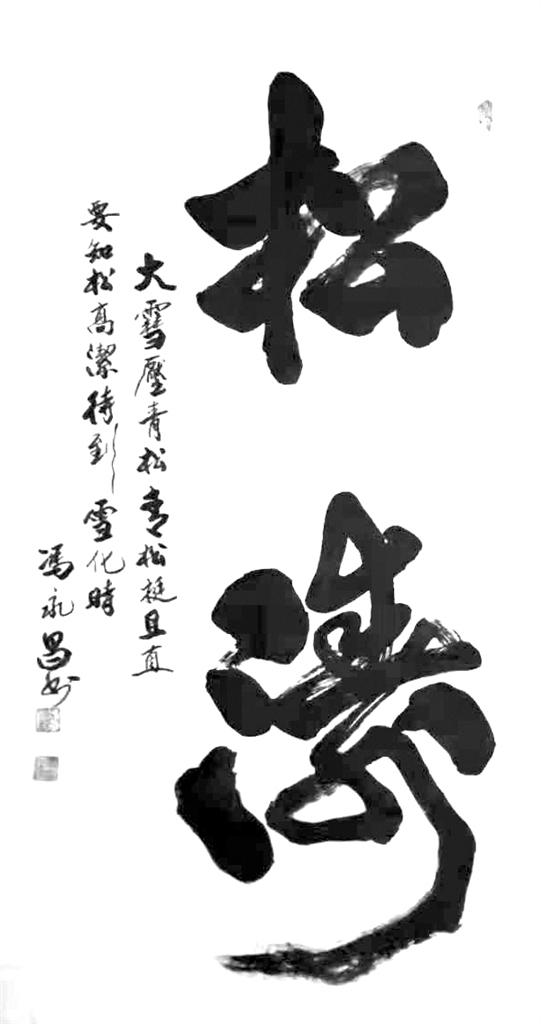 松
涛
大雪壓青松青松挺且直
要知松高潔待到雪化時
馮永昌书